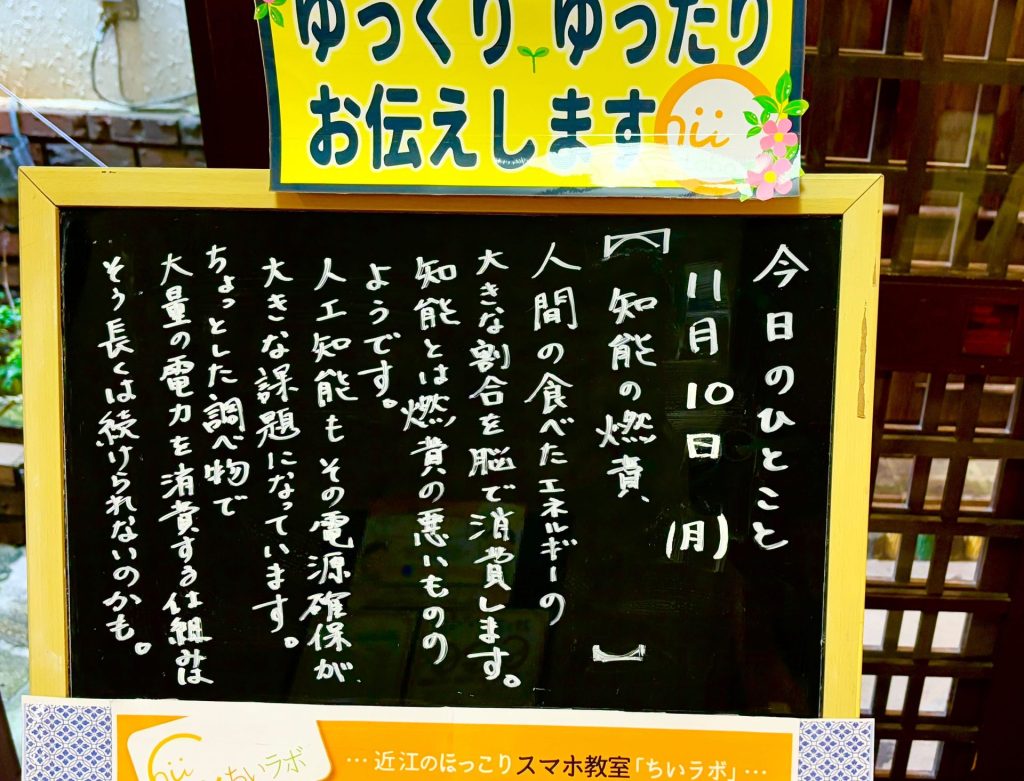 ゆっくり ゆったり
お伝えします
hii
今日のひとこと
11月10日(月)
【 知能の燃費 】
人間の食べたエネルギーの
大きな割合を脳で消費します。
知能とは燃費の悪いものの
ようです。
人工知能もその電源確保が
大きな課題になっています。
ちょっとした調べ物で
大量の電力を消費する仕組みは
そう長くは続けられないのかも。
hii ちいラボ
… 近江のほっこりスマホ教室「ちいラボ」 …